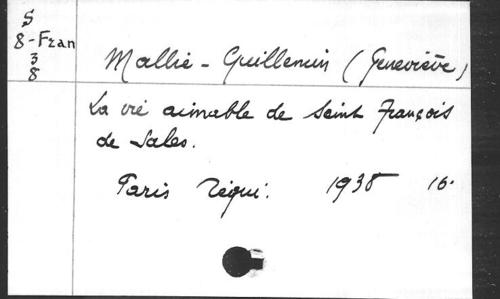 S
8-Fran
3
8
Mallié-Guillemin (Geneviève)
La vie aimable de Saint François
de Sales.
Paris Téqui. 1938 16.